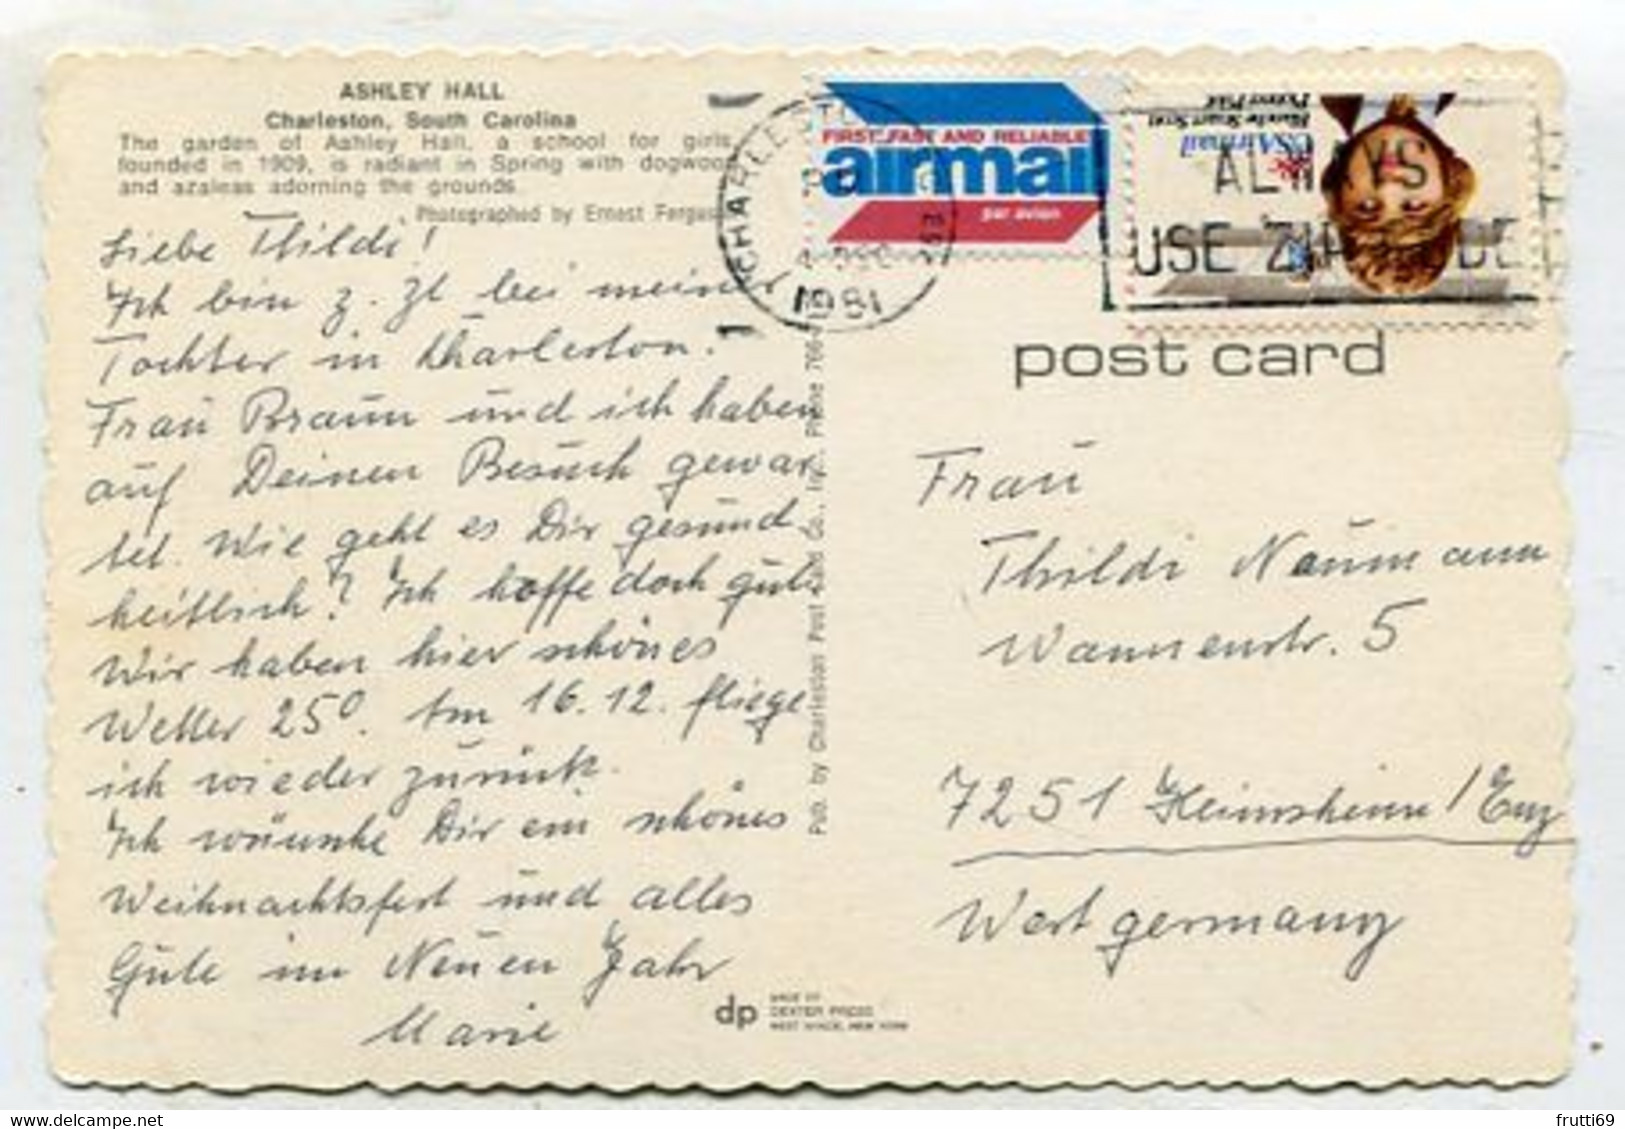 ASHLEY HALL
Charleston, South Carolina
The garden of Ashley Hall, a school for girls,
founded in 1909, is radiant in Spring with dogwood
and azaleas adorning the grounds.
Photographed by Ernest
Liebe Thildi!
Ich bin z. Zt bei meiner
Tochter in Charleston.
Frau Braun und ich haben
auf Deinen Besuch gewar
tet. Wie geht es Dir gesund
heitlich? Ich hoffe doch gut.
Wir haben hier schönes
Wetter 25°. Am 16.12. fliege
ich wieder zurück.
Ich wünsche Dir ein schönes
Weihnachtsfest und alles
Gute im Neuen Jahr
Marie
Pub. by Charleston Post Card Co., Phone 766-
CHARLESTON
1981
FIRST..FAST AND RELIABLE
airmail
par avion
ALWAYS
USE ZIP CODE
USAirmail
Blanche Stuart Scott
Pioneer Pilot
post card
Frau
Thildi Naumann
Wannenstr. 5
7251 Heimsheim/Enz
Westgermany
dp
MADE BY
DEXTER PRESS
WEST NYACK, NEW YORK
www.delcampe.net
frutti69